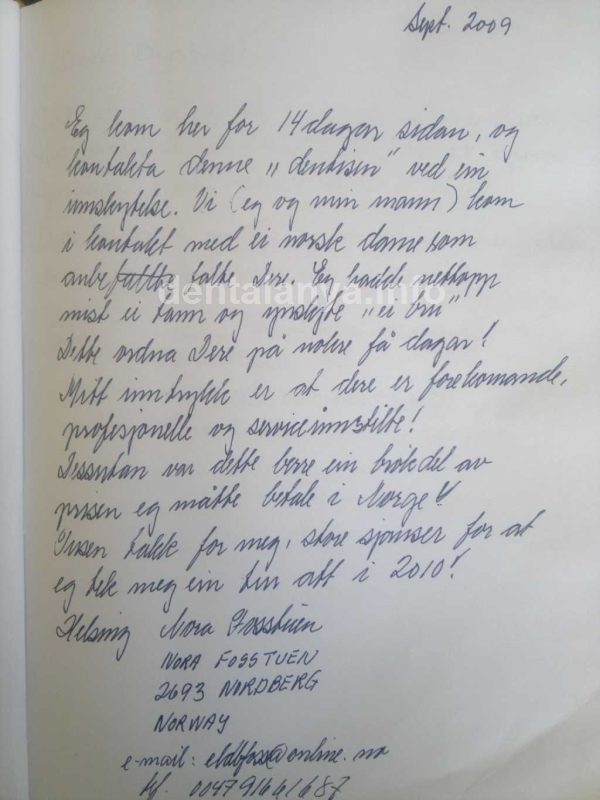 Sept. 2009
Eg kom her for 14 dagar sidan, og
kontakta denne „dentisen" ved ein
innskytelse. Vi (eg og min mann) kom
i kontakt med ei norsk dame som
anbefalte Dere. Eg hadde nettopp
mist ei tann og ynskjte „ei bru"
Dette ordna Dere på nokre få dagar!
Mitt inntrykk er at dere er forekomande,
profesjonelle og serviceinnstilte!
Dessutan var dette berre ein brøkdel av
prisen eg måtte betale i Norge!!
Tusen takk for meg, store sjanser for at
eg tek meg ein tur att i 2010!
Helsing Nora Fosstuen
NORA FOSSTUEN
2693 NORDBERG
NORWAY
e-mail: @online.no
tlf. 004791661687
dentalanya.info